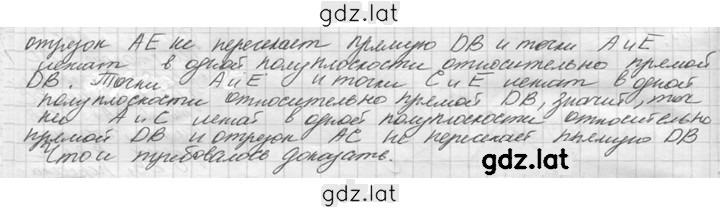 gdz.lat
отрезок AE не пересекает прямую DB и точки A и E
лежат в одной полуплоскости относительно прямой
DB. Точки A и E и точки C и E лежат в одной
полуплоскости относительно прямой DB, значит, точ
ки A и C лежат в одной полуплоскости относительно
прямой DB и отрезок AC не пересекает прямую DB
Что и требовалось доказать.
gdz.lat
gdz.lat